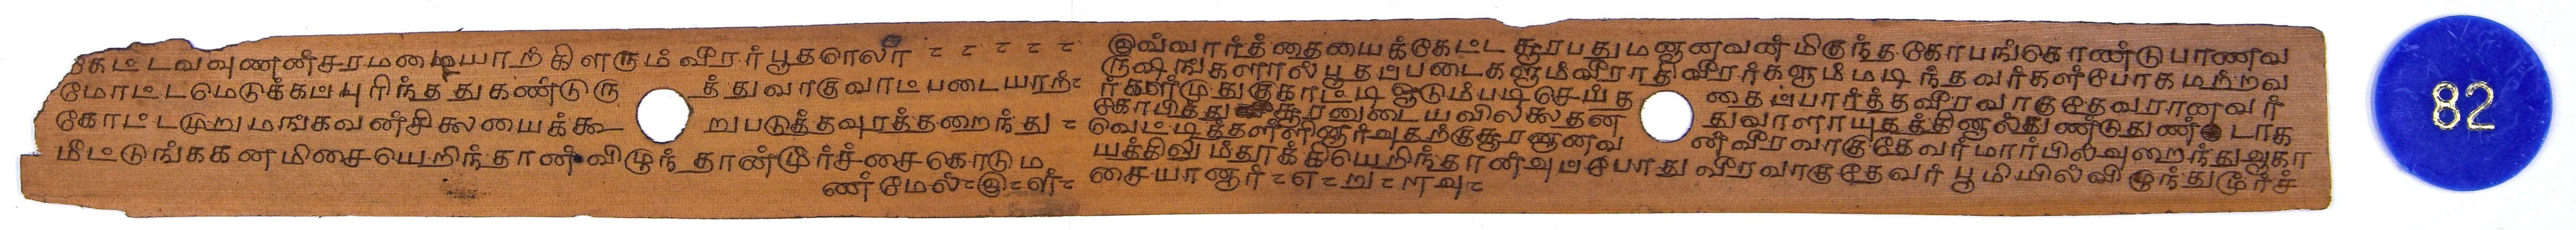 கேட்டவவுணன்சரமழையாற்கிளரும் வீரர்பூதரெலாந
மோட்டமெடுக்கப்புரிந்தது கண்டுரு த்துவாகுவாட்படையாற்
கோட்டமுறுமங்கவன்சிலையைக்கூ றுபடுத்தவுரத்தறைந்து
மீட்டுங்ககனமிசையெறிந்தான் விழுந்தான்மூர்ச்சைகொடும
ண்மேல்
இவ்வார்த்தையைக்கேட்ட சூரபதுமனானவன் மிகுந்த கோபங்கொண்டு பாணவ
ருஷங்களால் பூதப்படைகளும்வீராதிவீரர்களும்மடிந்தவர்கள்போகமற்றவ
ர்கள்முதுகுகாட்டி ஓடும்படி செய்த தைப்பார்த்தவீரவாகுதேவரானவர்
கோபித்து சூரனுடையவில்லைதன துவாளாயுதத்தினால்துண்டுதுண்டாக
வெட்டித்தள்ளினார்அதற்குசூரனானவ ன்வீரவாகுதேவர்மார்பில்அறைந்துஆகா
யத்திலும்தூக்கியெறிந்தான்அப்போது வீரவாகுதேவர் பூமியில்விழுந்துமூர்ச்
சையானார்
82